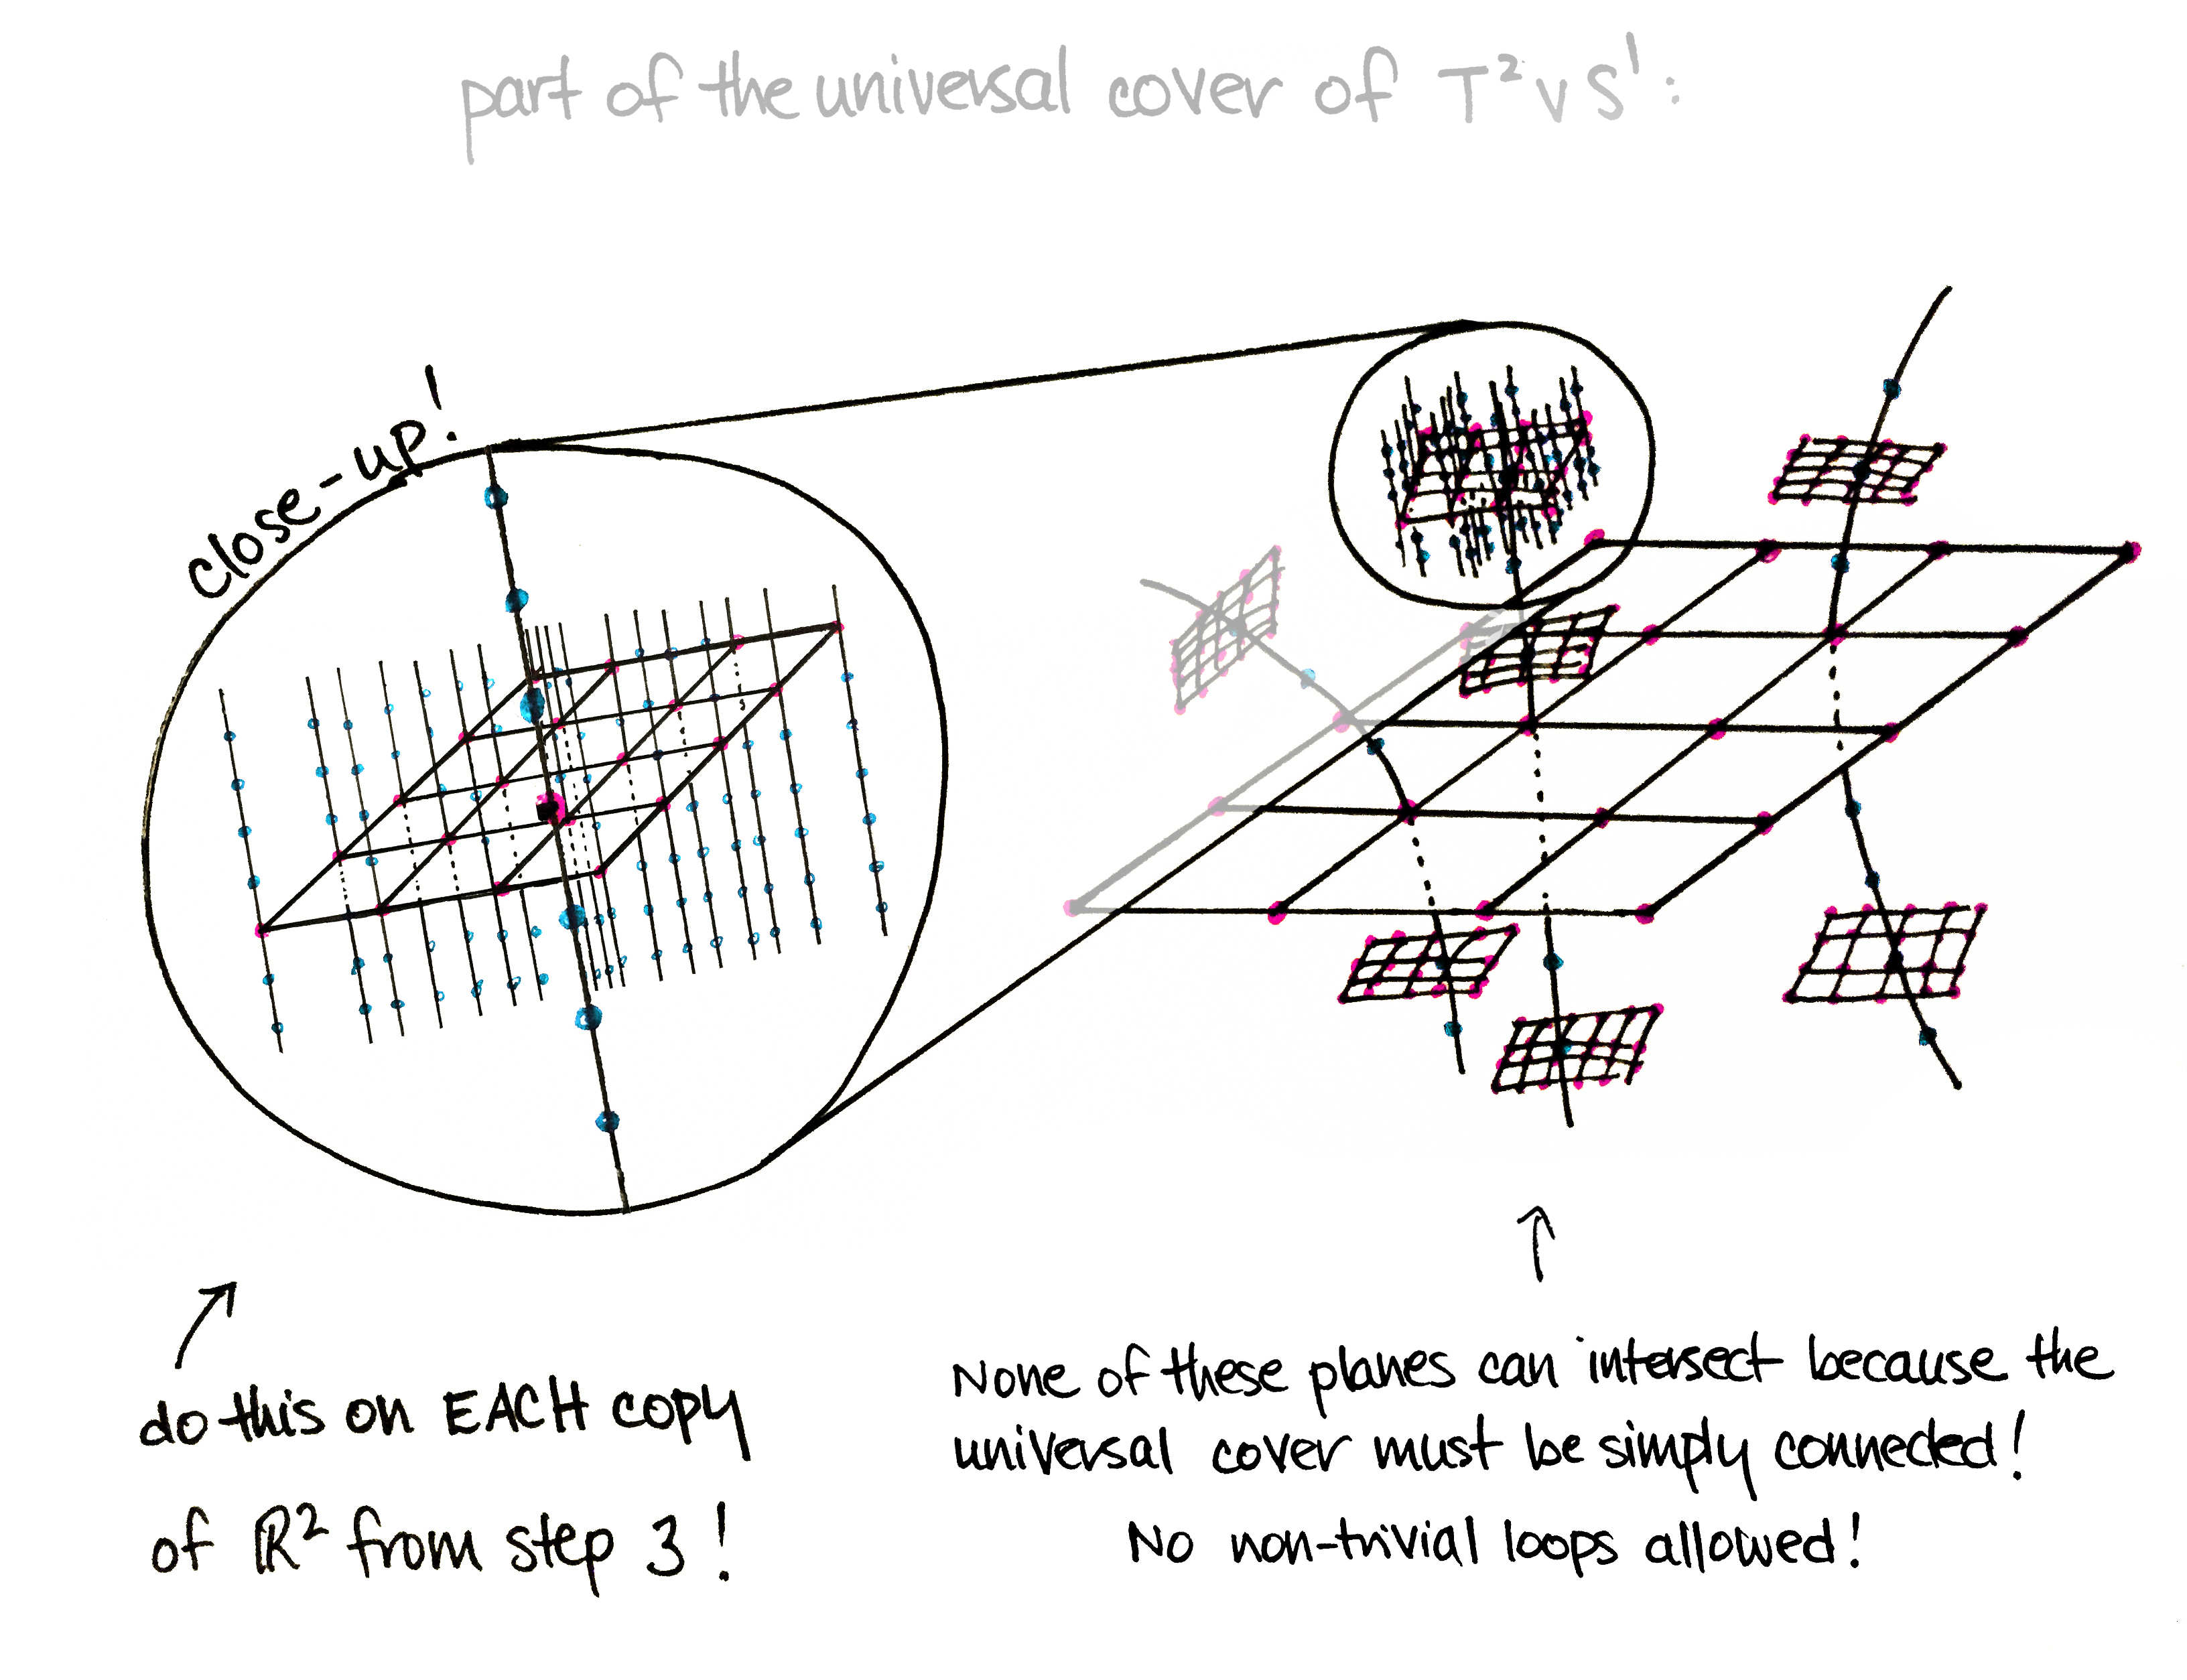 part of the universal cover of T² ∨ S¹:
close-up!
do this on EACH copy
of ℝ² from step 3!
None of these planes can intersect because the
universal cover must be simply connected!
No non-trivial loops allowed!